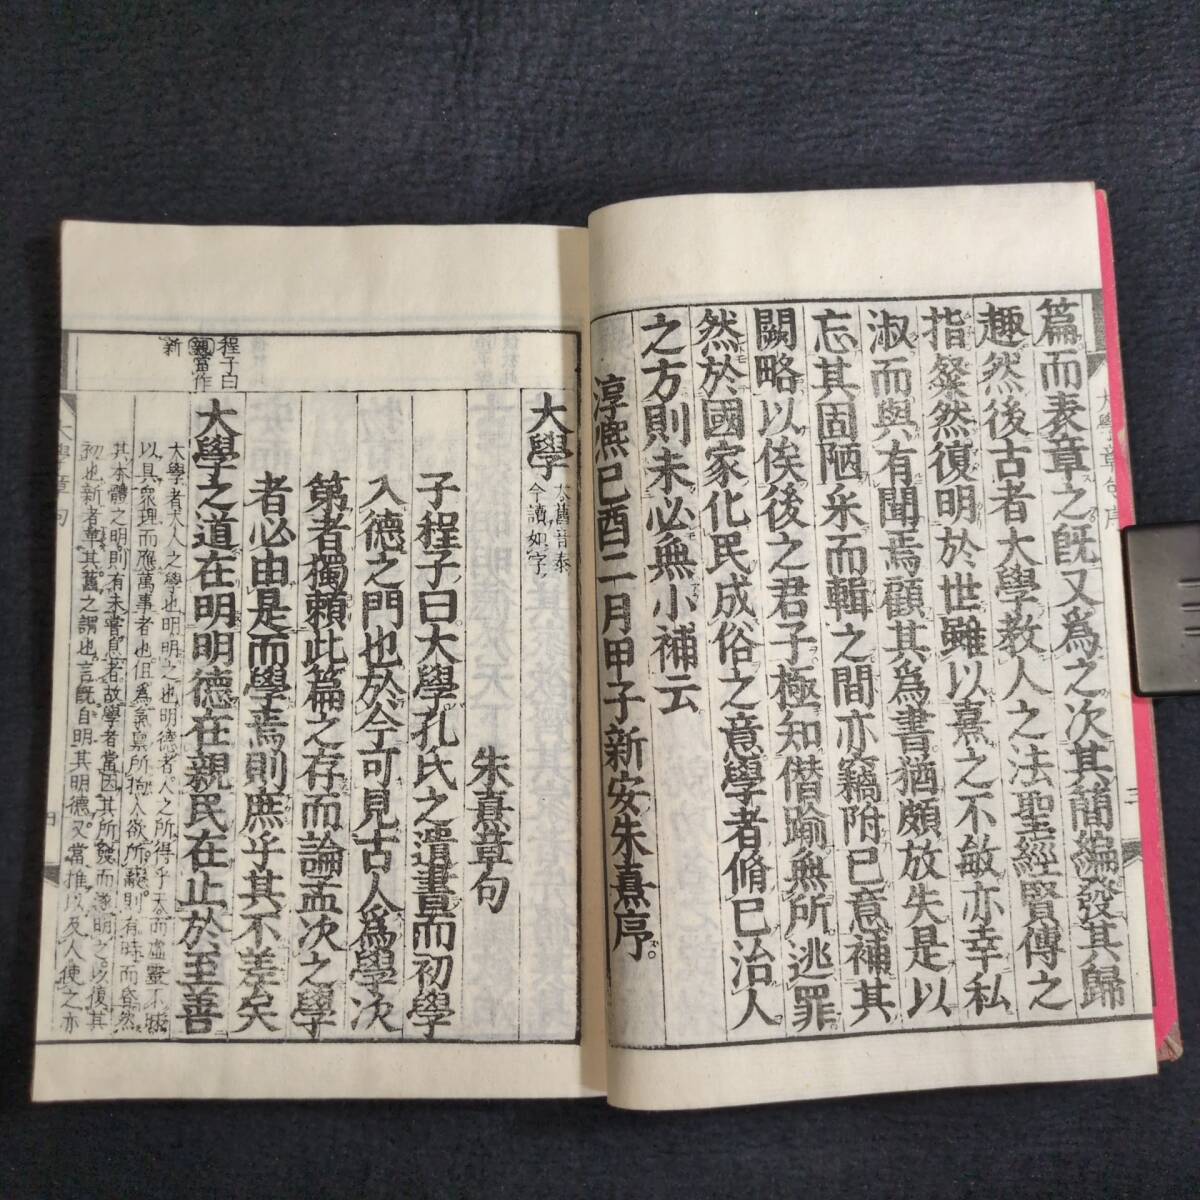 篇而表章之旣又爲之次其簡編發其歸
趣然後古者大學教人之法聖經賢傳之
指粲然復明於世雖以熹之不敏亦幸私
淑而與有聞焉顧其爲書猶頗放失是以
忘其固陋采而輯之間亦竊附已意補其
闕略以俟後之君子極知僭踰無所逃罪
然於國家化民成俗之意學者脩已治人
之方則未必無小補云
淳熈已酉二月甲子新安朱熹序
大學章句序
程子曰
親當作
新
大學
大舊音泰
今讀如字
朱熹章句
子程子曰大學孔氏之遺書而初學
入德之門也於今可見古人爲學次
第者獨賴此篇之存而論孟次之學
者必由是而學焉則庶乎其不差矣
大學之道在明明德在親民在止於至善
大學者大人之學也明明之也明德者人之所得乎天而虛靈不昧
以具衆理而應萬事者也但爲氣稟所拘人欲所蔽則有時而昏然
其本體之明則有未嘗息者故學者當因其所發而遂明之以復其
初也新者革其舊之謂也言旣自明其明德又當推以及人使之亦
大學章句